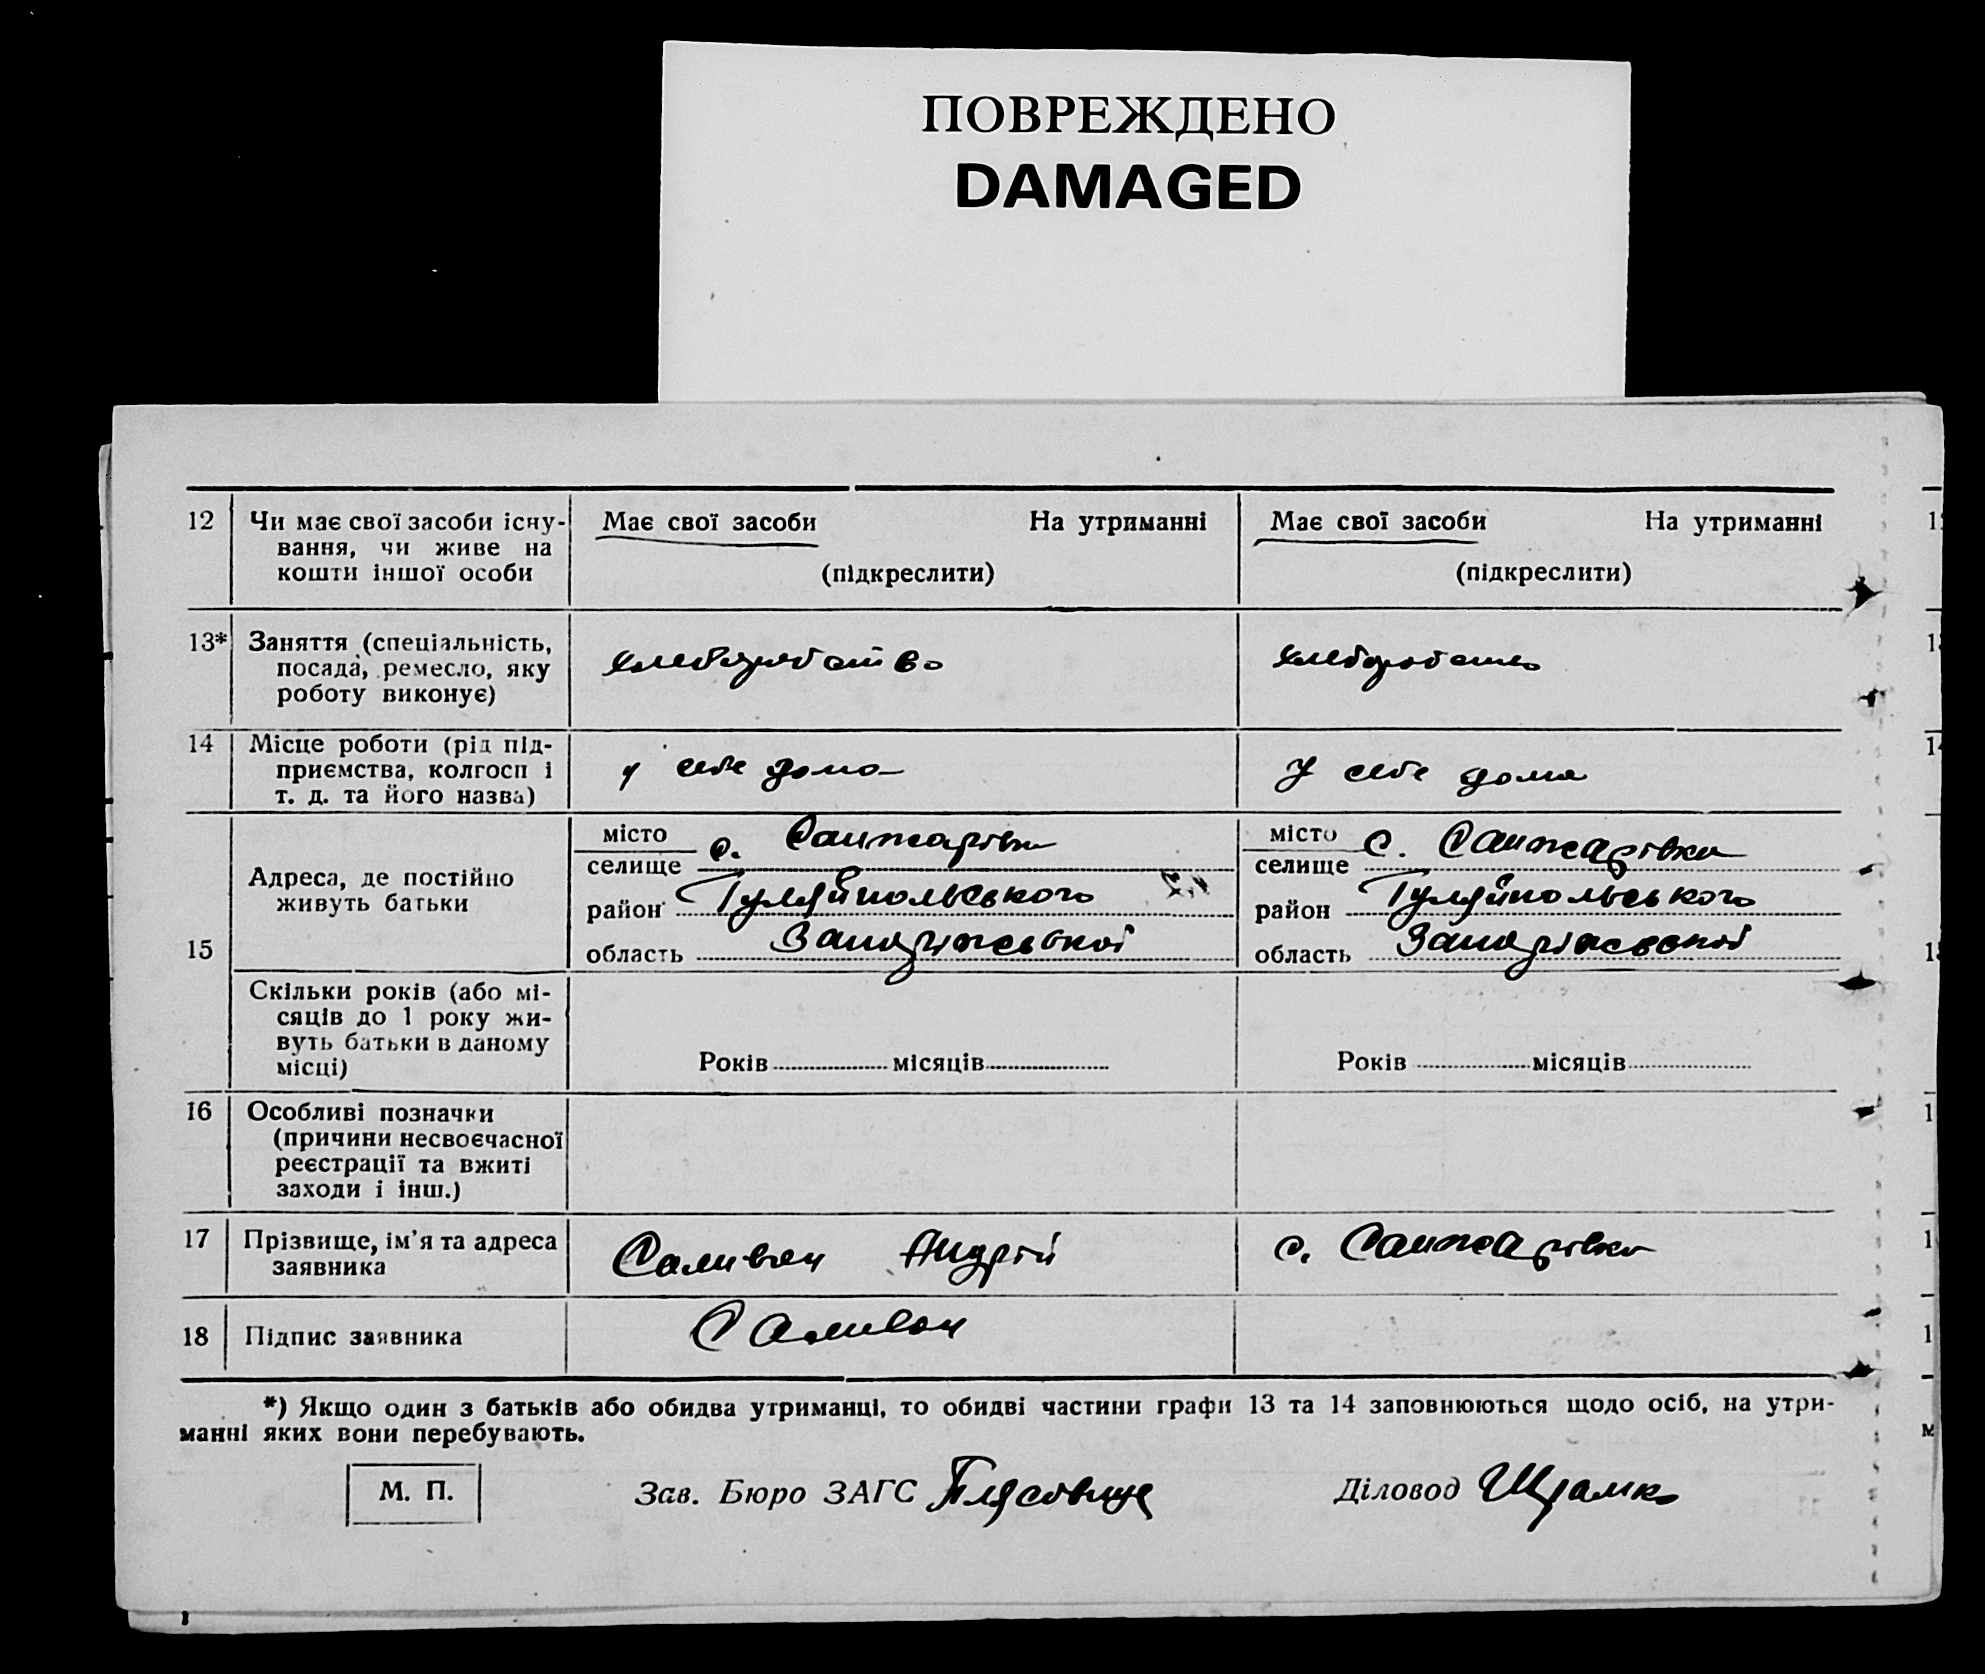 ПОВРЕЖДЕНО
DAMAGED
12 Чи має свої засоби існу-
вання, чи живе на
кошти іншої особи
Має свої засоби На утриманні
(підкреслити)
Має свої засоби На утриманні
(підкреслити)
13* Заняття (спеціальність,
посада, ремесло, яку
роботу виконує)
хлеборобство
хлеборобство
14 Місце роботи (рід під-
приємства, колгосп і
т. д. та його назва)
у себе дома
у себе дома
15
Адреса, де постійно
живуть батьки
місто
селище с. Санжарівка
район Гуляйпольського
область Запорізської
місто
селище с. Санжарівка
район Гуляйпольського
область Запорізської
Скільки років (або мі-
сяців до 1 року жи-
вуть батьки в даному
місці)
Років місяців
Років місяців
16 Особливі позначки
(причини несвоєчасної
реєстрації та вжиті
заходи і інш.)
17 Прізвище, ім’я та адреса
заявника
Саливон Андрій
с. Санжарівка
18 Підпис заявника
Саливон
*) Якщо один з батьків або обидва утриманці, то обидві частини графи 13 та 14 заповнюються щодо осіб, на утри-
манні яких вони перебувають.
М. П.
Зав. Бюро ЗАГС
Діловод Шрамко